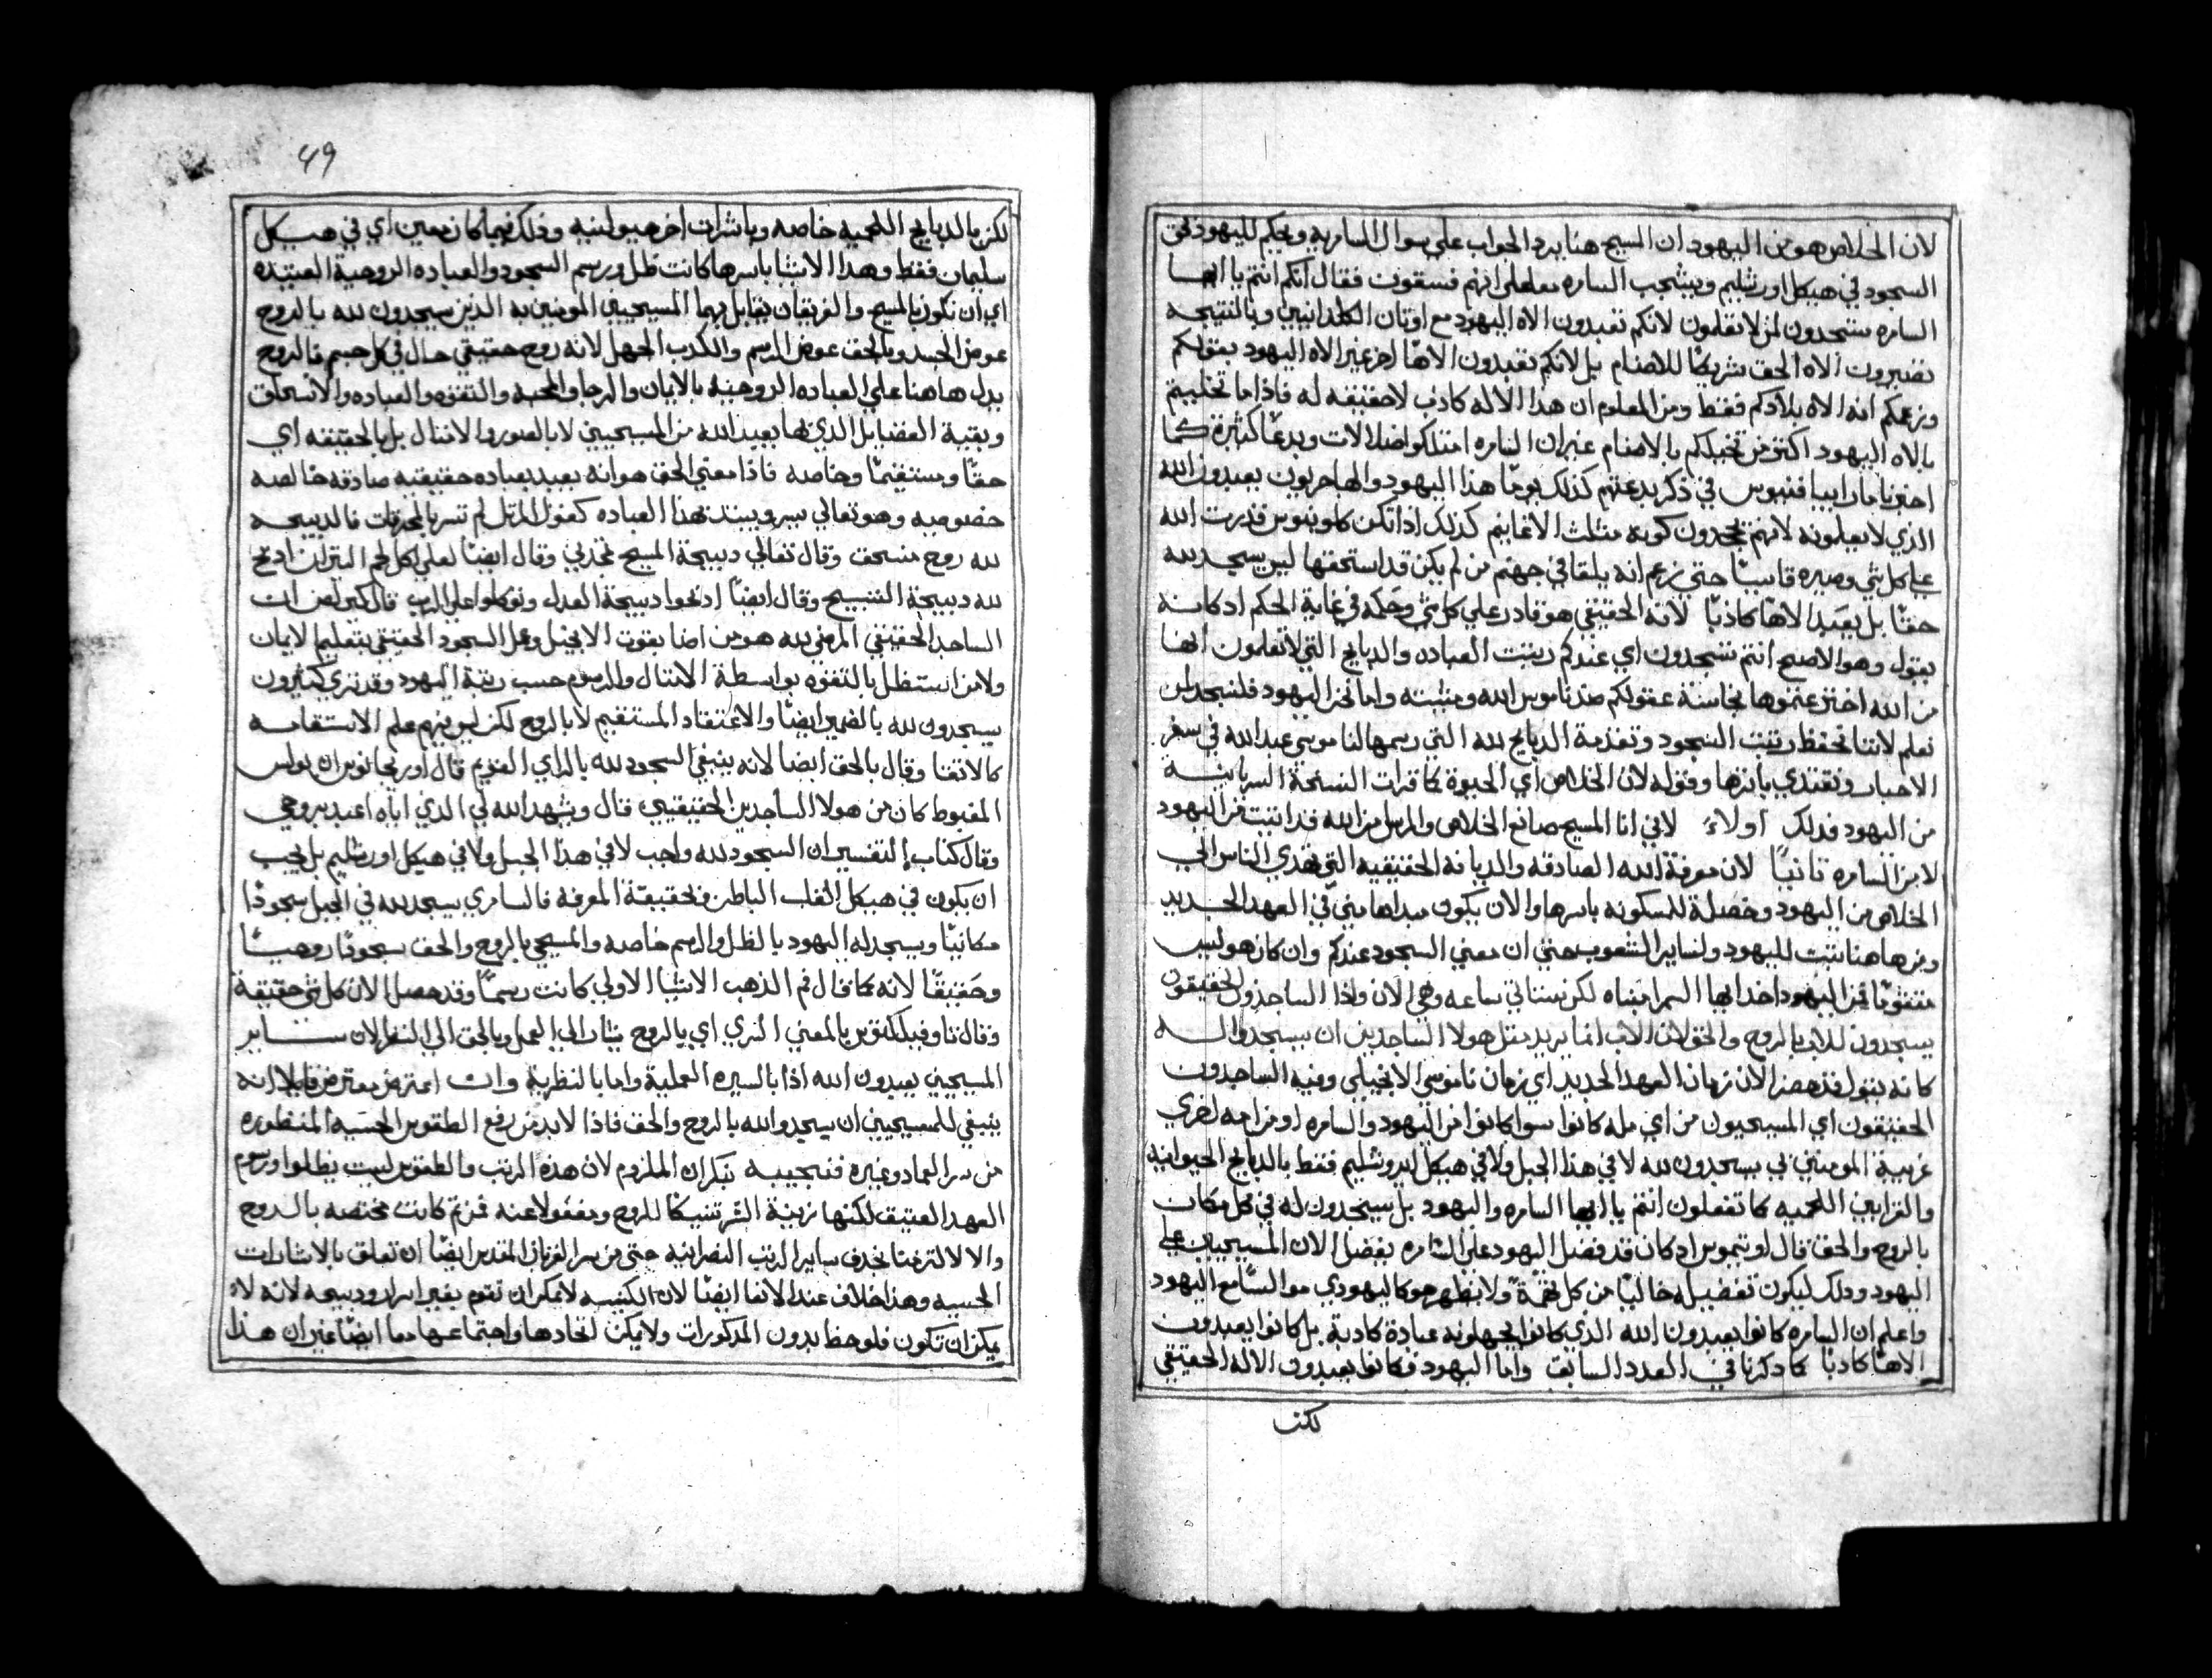 لان الخلاص هو من اليهود ان المسيح هنا يرد الجواب علي سوال السامريه ويحكم لليهود بحق
السجود في هيكل اورشليم ويشجب السامره معلماً انهم فسقوت فقال انكم انتم يا ايها
السامره تسجدون لمن لا تعلمون لانكم تعبدون الاه اليهود مع اوثان الكلدانيين وبالنتيجه
تصيرون الاه الحق شريكاً للاصنام بل لانكم تعبدون الاهاً اخر غير الاه اليهود بقولكم
وزعمكم انه الاه بلادكم فقط ومن المعلوم ان هذا الاله كاذب لا حقيقه له فاذا ما تخليتم
بالاه اليهود اكثر من تخيلكم بالاصنام غير ان السامره امتلكوا ضلالات وبدعاً كثيرة كما
اخبرنا مار ابيفانيوس في ذكر بدعتهم كذلك يوماً هذا اليهود والهاجريون يعبدون الله
الذي لا يعلمونه لانهم يجحدون كونه مثلث الاقانيم كذلك اذا تكن كلوينوس قدرت الله
علي كل شي وصيره قاسياً حتي زعم انه يلقا في جهنم من لم يكن قد استحقها ليس يسجد لله
حقاً بل يعبد الاهاً كاذباً لانه الحقيقي هو قادر علي كل شي وحكمه في غاية الحكم اد كانه
يقول وهو الاصح انتم تسجدون اي عندكم رتبت العباده والدبايح التي لا تعلمون انها
من الله اخترعتموها بخاسة عقولكم ضد ناموس الله ومشيته واما نحن اليهود فلنسجد لمن
نعلم لاننا نحفظ رتبت السجود وتقدمة الدبايح لله التي رسمها لنا موسي عبد الله في سفر
الاحبار ونقتدي باثرها وقوله لان الخلاص اي الحيوة كما قرات النسخة السريانيه
من اليهود فدلك اولاً لاني انا المسيح صانع الخلاص والمرسل من الله قد اتيت من اليهود
لا من السامره ثانياً لان معرفة الله الصادقه والديانه الحقيقيه التي تهدي الناس الي
الخلاص من اليهود وحصلة للمسكونه باسرها والان يكون مبداها مني في العهد الجديد
ومن هاهنا تثبت لليهود ولساير الشعوب حتي ان معني السجود عندكم وان كان هو ليس
متقوماً من اليهود اخدا ايها السمرا مبناه لكن ستاتي ساعه وهي الان واذا الساجدون الحقيقون
يسجدون للاب بالروح والحق لان الاب انما يريد مثل هولا الساجدين ان يسجدوا له
كانه يقول قد حضر الان زمان العهد الجديد اي زمان ناموسي الانجيلي وفيه الساجدون
الحقيقون اي المسيحيون من اي مله كانوا سوا كانوا من اليهود والسامره او من امه اخري
غريبة المومنين بي يسجدون لله لا في هذا الجبل ولا في هيكل اورشليم فقط بالدبايح الحيوانيه
والقرابين اللحميه كما تفعلون انتم يا ايها السامره واليهود بل يسجدون له في كل مكان
بالروح والحق قال اوتيموس اد كان قد فضل اليهود علي السامره بفضل الان المسيحيين علي
اليهود ودلك ليكون تفضيله خالياً من كل تهمة ولا يظهر هو كاليهودي مو السامع اليهود
واعلم ان السامره كانوا يعبدون الله الذي كانوا يجهلونه عبادة كادبة بل كانوا يعبدون
الاهاً كادباً كما دكرنا في العدد السابق واما اليهود فكانوا يعبدون الاله الحقيقي
لكن
49
لكن بالدبايح اللحميه خاصه وباشارات اخر هيولنيه وذلك فيما كان معين اي في هيكل
سليمان فقط وهذا الاشيا باسرها كانت ظل ورسم السجود والعباده الروحية العتيده
اي ان تكون بالمسيح والفريقان يقابل بهما المسيحيين المومنين به الذين سيجدون لله بالروح
عوض الجسد وبالحق عوض الرسم والكدب الجهل لانه روح حقيقي حال في كل جسم فالروح
يدل هاهنا علي العباده الروحيه بالايمان والرجا والمحبه والتقوه والعباده والانسحاق
وبقية الفضايل الذي بها يعبد الله من المسيحيين لا بالصور والامتال بل بالحقيقه اي
حقاً ومستقيماً وخاصه فاذا معني الحق هو انه يعبد بعباده حقيقيه صادقه خالصه
خصوصيه وهو تعالي يسر ويبتد بهذا العباده كقول المرتل لم تسر بالمحرقات فالدبيحه
لله روح منسحق وقال تعالي دبيحة المسيح تمجدني وقال ايضاً لعلي اكل لحم التيران ادبح
لله دبيحة التسبيح وقال ايضاً ادبحوا دبيحة العدل وتوكلوا علي الرب قال كيرلص ان
الساجد الحقيقي المرضي لله هو من اضا بقوت الانجيل وعمل السجود الحقيقي بتعليم الايمان
ولا من استظل بالتقوه بواسطة الامتال والرسوم حسب رتبة اليهود وقد نري كثيرون
يسجدون لله بالضمير ايضاً والاعتقاد المستقيم لا بالروح لكن ليس فيهم علم الاستقامه
كالاتقيا وقال بالحق ايضا لانه ينبغي السجود لله بالراي القويم قال اوريجانوس ان بولس
المغبوط كان من هولا الساجدين الحقيقيين قال ويشهد الله لي الذي اياه اعبد بروحي
وقال كتاب التفسير ان السجود لله واجب لا في هذا الجبل ولا في هيكل اورشليم بل يجب
ان يكون في هيكل القلب الباطن في حقيقة المعرفه فالسامري يسجد لله في الجبل سجوداً
مكانياً ويسجد له اليهود بالظل والرسم خاصه والمسيحي بالروح والحق سجوداً روحياً
وحقيقاً لانه كما قال فم الذهب الاشيا الاولي كانت رسماً وقد حصل الان كل شي حقيقة
وقال تاوفيلكتوس بالمعني السري اي بالروح يشار الي العمل وبالحق الي النظر لان ساير
المسيحيين يعبدون الله اذا بالسيره العملية واما بالنظرية وان اعترض معترض قايلا انه
ينبغي للمسيحيين ان يسجدوا لله بالروح والحق فاذا لا بد من رفع الطقوس الحسيه المنظوره
من سر العماد وغيره فنجيبه بنكران الملزوم لان هذه الرتب والطقوس ليست بظلوا ورسم
العهد العتيق لكنها زينة الشر تنسكاً للروح ومفعولا عنه فمن تم كانت مختصه بالروح
والا لالتزمنا بحدف ساير الرتب النصرانيه حتي من سر القربان المقدس ايضاً ان تعلق بالاشارات
الحسيه وهذا خلاف عند الانفا ايضاً لان الكنيسه لا يمكن ان تقوم بغير اسرار ودبيحه لانه لا
يمكن ان تكون فلوحظ بدون المدكورات ولا يمكن اتحادها واجتماعها معا ايضاً غير ان هذا